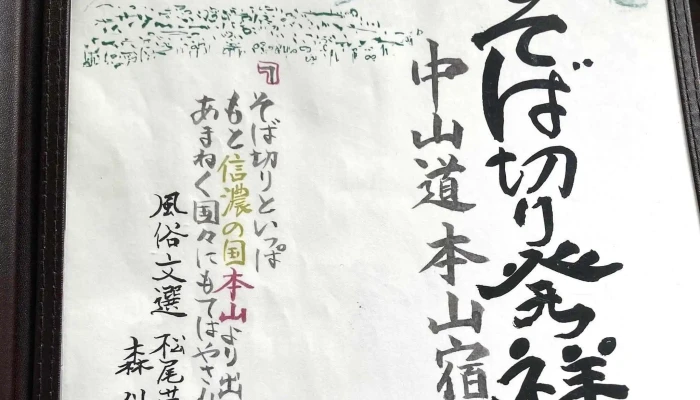 そば切り発祥
中山道本山宿
『そば切りといっぱ
もと信濃の国本山より出
あまねく国々にもてはやさ
風俗文選 松尾芭
森川